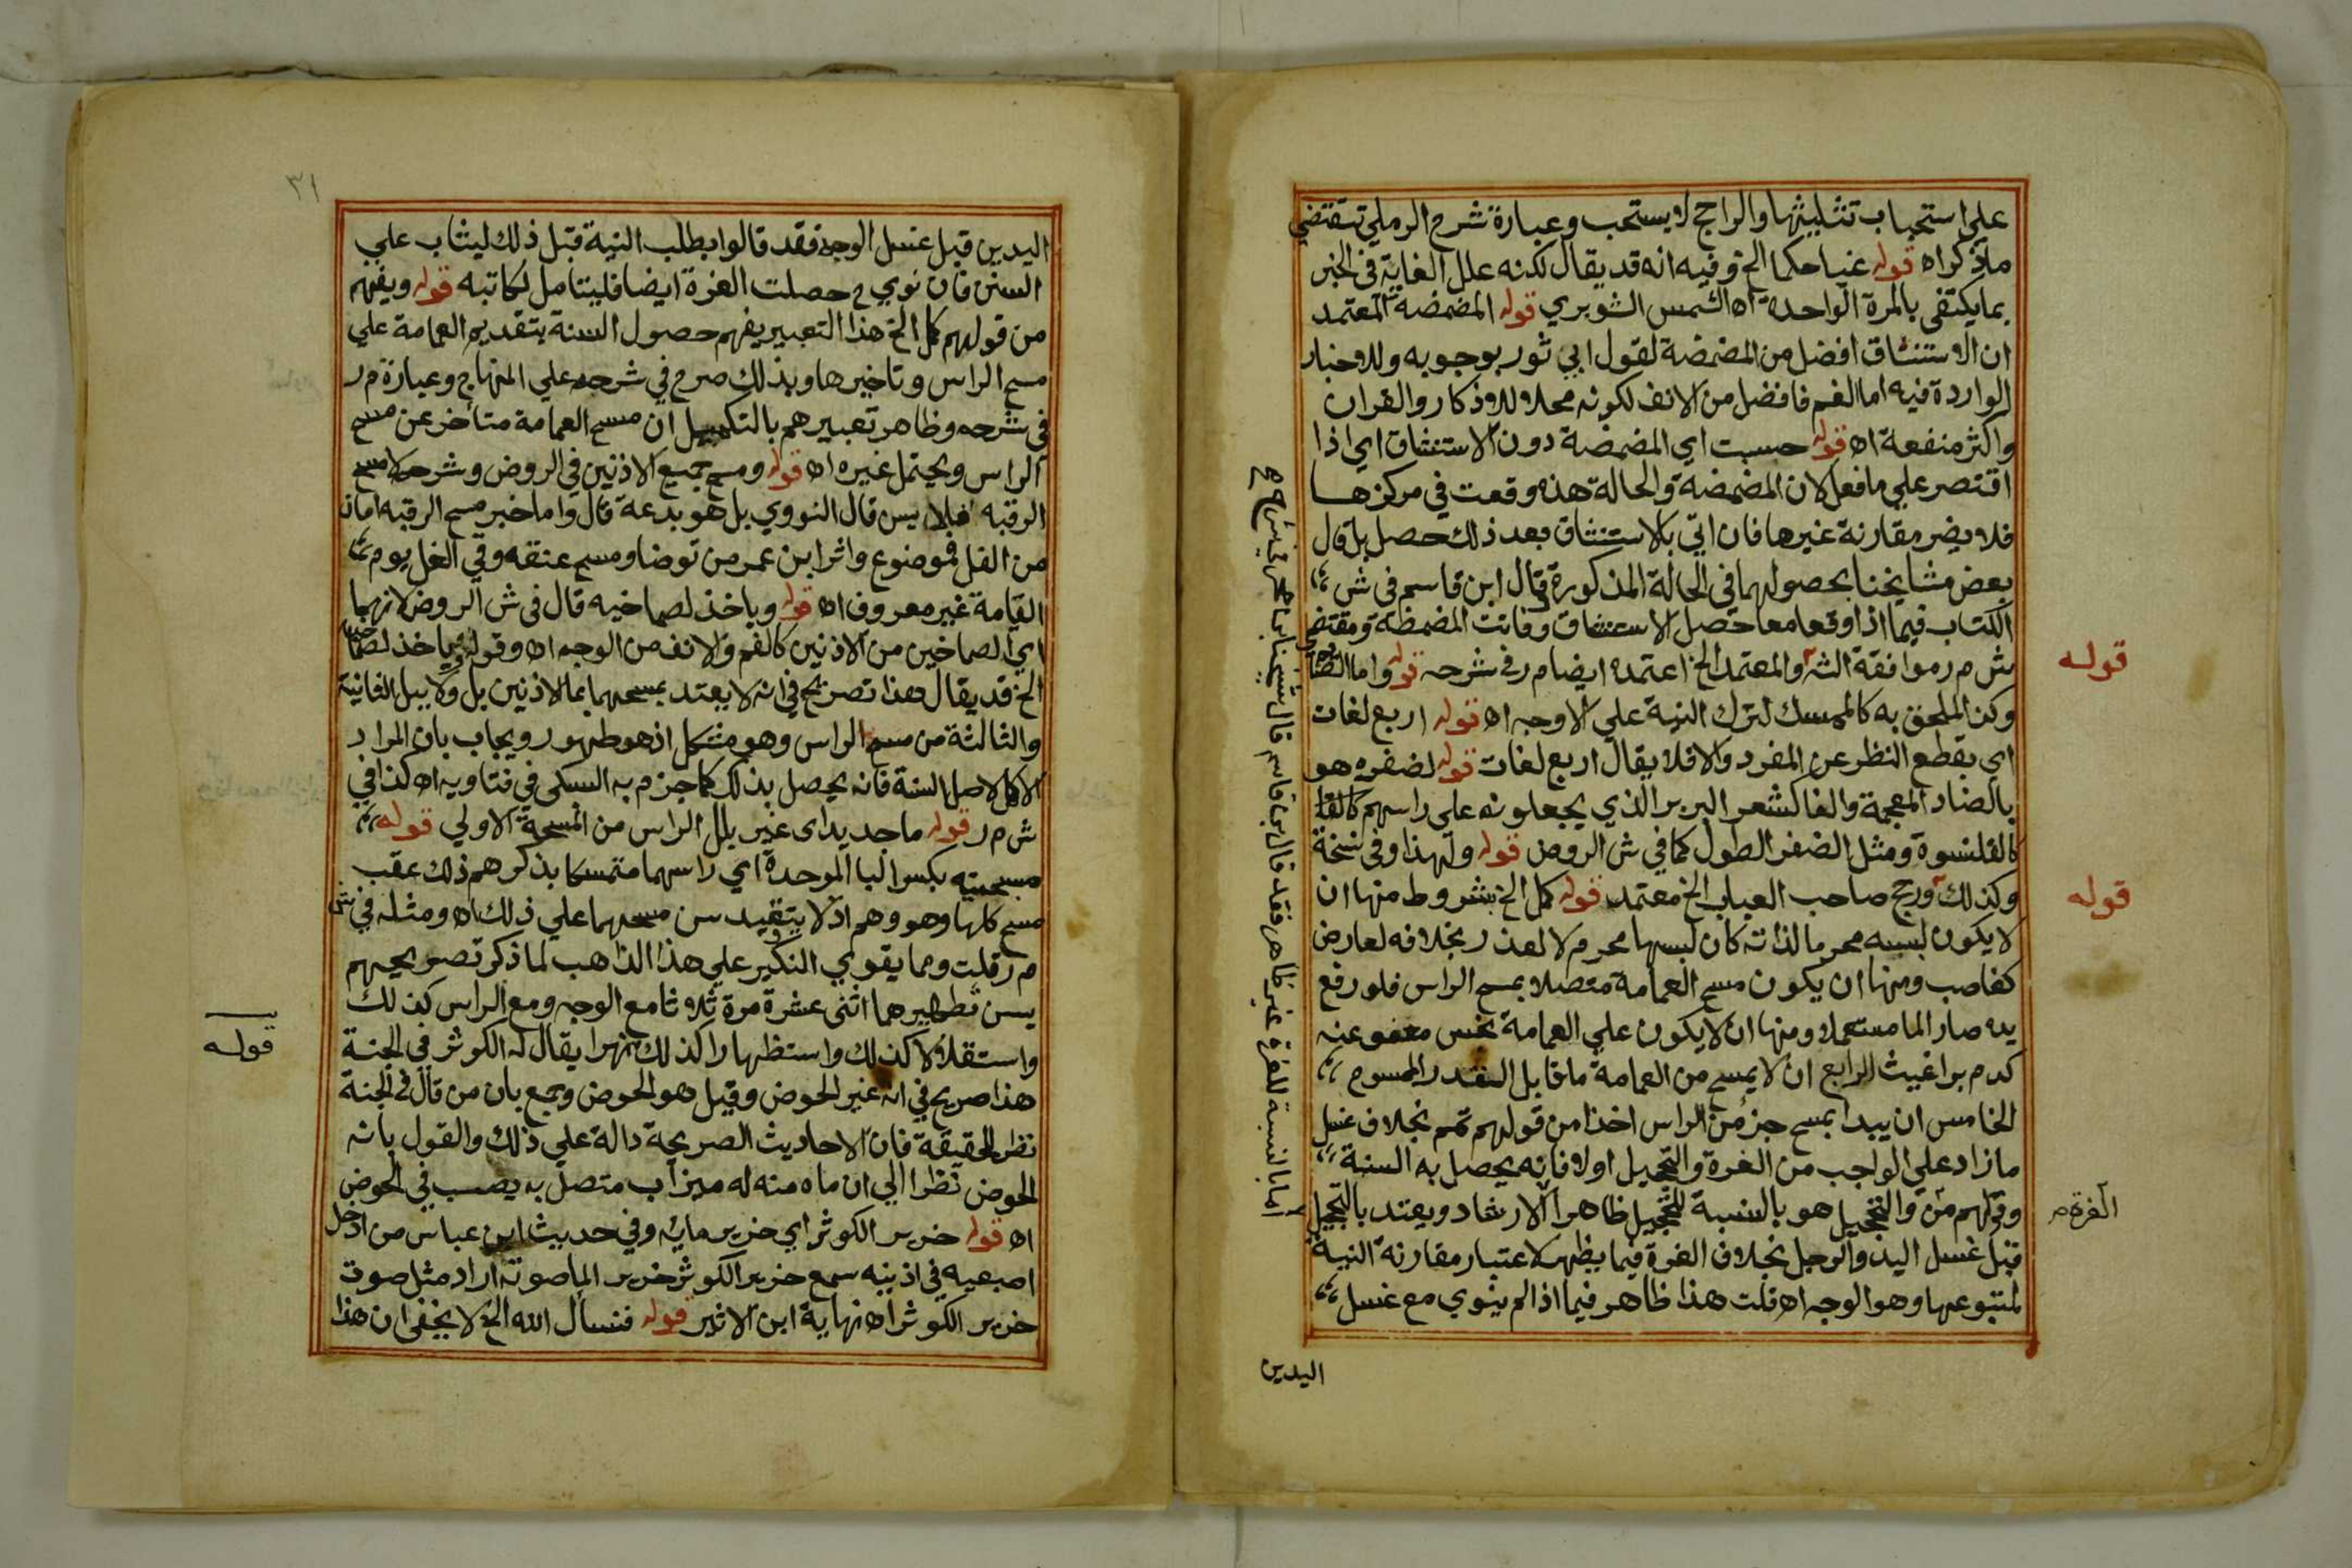 على استحباب تثليثها والراجح لا يستحب وعبارة شرح الرملي تقتضي
ماذكراه قوله غيا حكما الخ وفيه انه قد يقال لكنه علل الغاية في الخبر
بما يكتفى بالمرة الواحدة اه الشمس الشوبري قوله المضمضة المعتمد
ان الاستنشاق افضل من المضمضة لقول ابي ثور بوجوبه وللاخبار
الواردة فيه اما الفم فافضل من الانف لكونه محلا للاذكار والقران
واكثر منفعة اه قوله حسبت اي المضمضة دون الاستنشاق اي اذا
اقتصر على مافعل لان المضمضة والحالة هذه وقعت في مركزها
فلا يضر مقارنة غيرها فان اتي بالاستنشاق بعد ذلك حصل بل قال
بعض مشايخنا بحصولهما في الحالة المذكورة قال ابن قاسم في ش
الكتاب فيما اذا وقعا معا حصل الاستنشاق وفاتت المضمضة ومقتضى
ش م ر موافقة الشه والمعتمد الخ اعتمده ايضا م ر في شرحه قوله واما
وكذا الملحق به كالممسك لترك النية على الاوجه اه قوله اربع لغات
اي بقطع النظر عن المفرد والا فلا يقال اربع لغات قوله لضفره هو
بالضاد المعجمة والفا الشعر البرير الذي يجعلونه على راسهم كالقا
كالقلنسوة ومثل الضفر الطول كما في ش الروض قوله ولهذا وفي نسخة
وكذلك ورجح صاحب العباب الخ معتمد قوله كمل الخ بشروط منها ان
لا يكون لبسه محرما لذاته كان لبسها محرم لا لعذر بخلافه لعارض
كغاصب ومنها ان يكون مسح العمامة متصلا بمسح الراس فلو رفع
يده صار الما مستعملا ومنها ان لا يكون على العمامة نجس معفو عنه
كدم براغيث الرابع ان لا يمسح من العمامة ما قابل القدر الممسوح
الخامس ان يبدا بمسح جزء من الراس اخذا من قولهم تمم بخلاف غسل
ما زاد على الواجب من الغرة والتحجيل اولا فانه يحصل به السنة
وقولهم من والتحجيل هو بالنسبة للتحجيل ظاهرا الارشاد ويعتد بالتحجيل
قبل غسل اليد والرجل بخلاف الغرة فيما يظهر لاعتبار مقارنة النية
لمتبوعها وهو الوجه اه قلت هذا ظاهر فيما اذا لم ينوي مع غسل
اليدين
قوله
قوله
الغرة م
اما بالنسبة للغرة غير ظاهر فقد قال ابن قاسم قال شيخنا
٣١
اليدين قبل غسل الوجه فقد قالوا بطلب النية قبل ذلك ليثاب على
السنن فان نوي ح حصلت الغرة ايضا فليتامل لكاتبه قوله ويفهم
من قولهم كمل الخ هذا التعبير يفهم حصول السنة بتقديم العمامة على
مسح الراس وتاخيرها وبذلك صرح في شرحه على المنهاج وعبارة م ر
في شرحه وظاهر تعبيرهم بالتكميل ان مسح العمامة متأخر عن مسح
الراس ويحتمل غيره اه قوله ومسح جميع الاذنين في الروض وشرحه لا مسح
الرقبة فلا يسن قال النووي بل هو بدعة قال واما خبر مسح الرقبه امان
من الغل فموضوع واثر ابن عمر من توضا ومسح عنقه وقي الغل يوم
القيامة غير معروف اه قوله وياخذ لصماخيه قال في ش الروض لانهما
اي الصماخين من الاذنين كالفم والانف من الوجه اه وقوله وياخذ لصماخيه
الخ قد يقال هذا تصريح في انه لا يعتد بمسحهما بما الاذنين بل ولا ببلل الثانية
والثالثة من مسح الراس وهو مشكل اذ هو طهور ويجاب بان المراد
الاكمل لاصل السنة فانه يحصل بذلك كما جزم به السبكي في فتاويه اه كذا في
ش م ر قوله ما جديدا اى غير بلل الراس من المسحة الاولي قوله
مسبحتيه بكسر البا الموحدة اي راسهما متمسكا بذكرهم ذلك عقب
مسح كلها وهو وهم اذ لا يتقيد سن مسحهما علي ذلك اه ومثله في ش
م ر قلت ومما يقوي النكير علي هذا الذاهب لما ذكر تصريحهم
يسن تطهيرهما اثنى عشرة مرة ثلاثا مع الوجه ومع الراس كذلك
واستقلالا كذلك واستظهارا كذلك نهرا يقال له الكوثر في الجنة
هذا صريح في انه غير الحوض وقيل هو الحوض وجمع بان من قال في الجنة
نظر للحقيقة فان الاحاديث الصريحة دالة علي ذلك والقول بانه
الحوض نظرا الي ان ماه منه له ميزاب متصل به يصب في الحوض
اه قوله خرير الكوثر اي خرير مايه وفي حديث ابن عباس من ادخل
اصبعيه في اذنيه سمع خرير الكوثر خرير الما صوته اراد مثل صوت
خرير الكوثر اه نهاية ابن الاثير قوله فنسأل الله الخ لا يخفى ان هذا
قوله